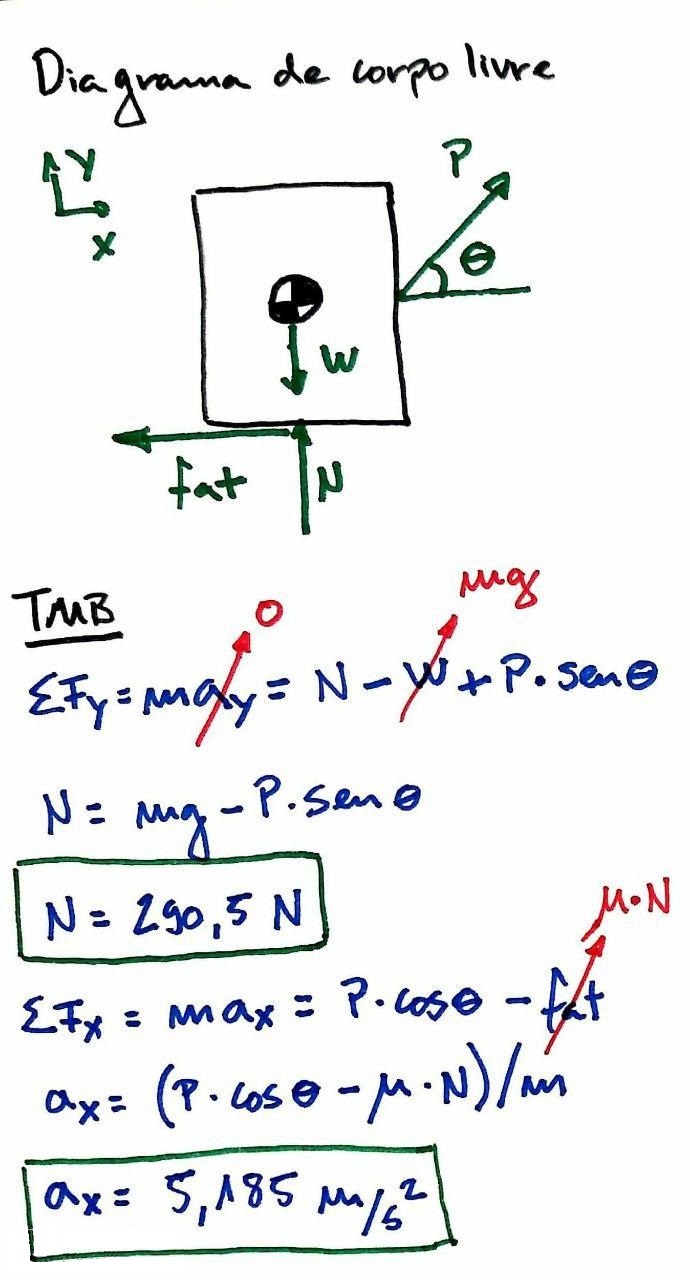 Diagrama de corpo livre
Y
X
P
θ
W
fat
N
TMB
0
mg
ΣFy = may = N - W + P. senθ
N = mg - P. senθ
N = 290,5 N
μ.N
ΣFx = max = P. cosθ - fat
ax = (P. cosθ - μ. N)/m
ax = 5,185 m/s²